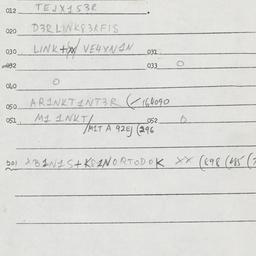 012 TEJX1S3R
020 D3RLINK83KFIS
030 LINK+ VE4XN1N 032
033 0
040 0
050 AR1NKT1NT3R (164090
051 M1 1NKT/ 052 0
/M1T A 92EJ (296
501 XB1N1S+KD1NORTODOK XX (698 (485 (